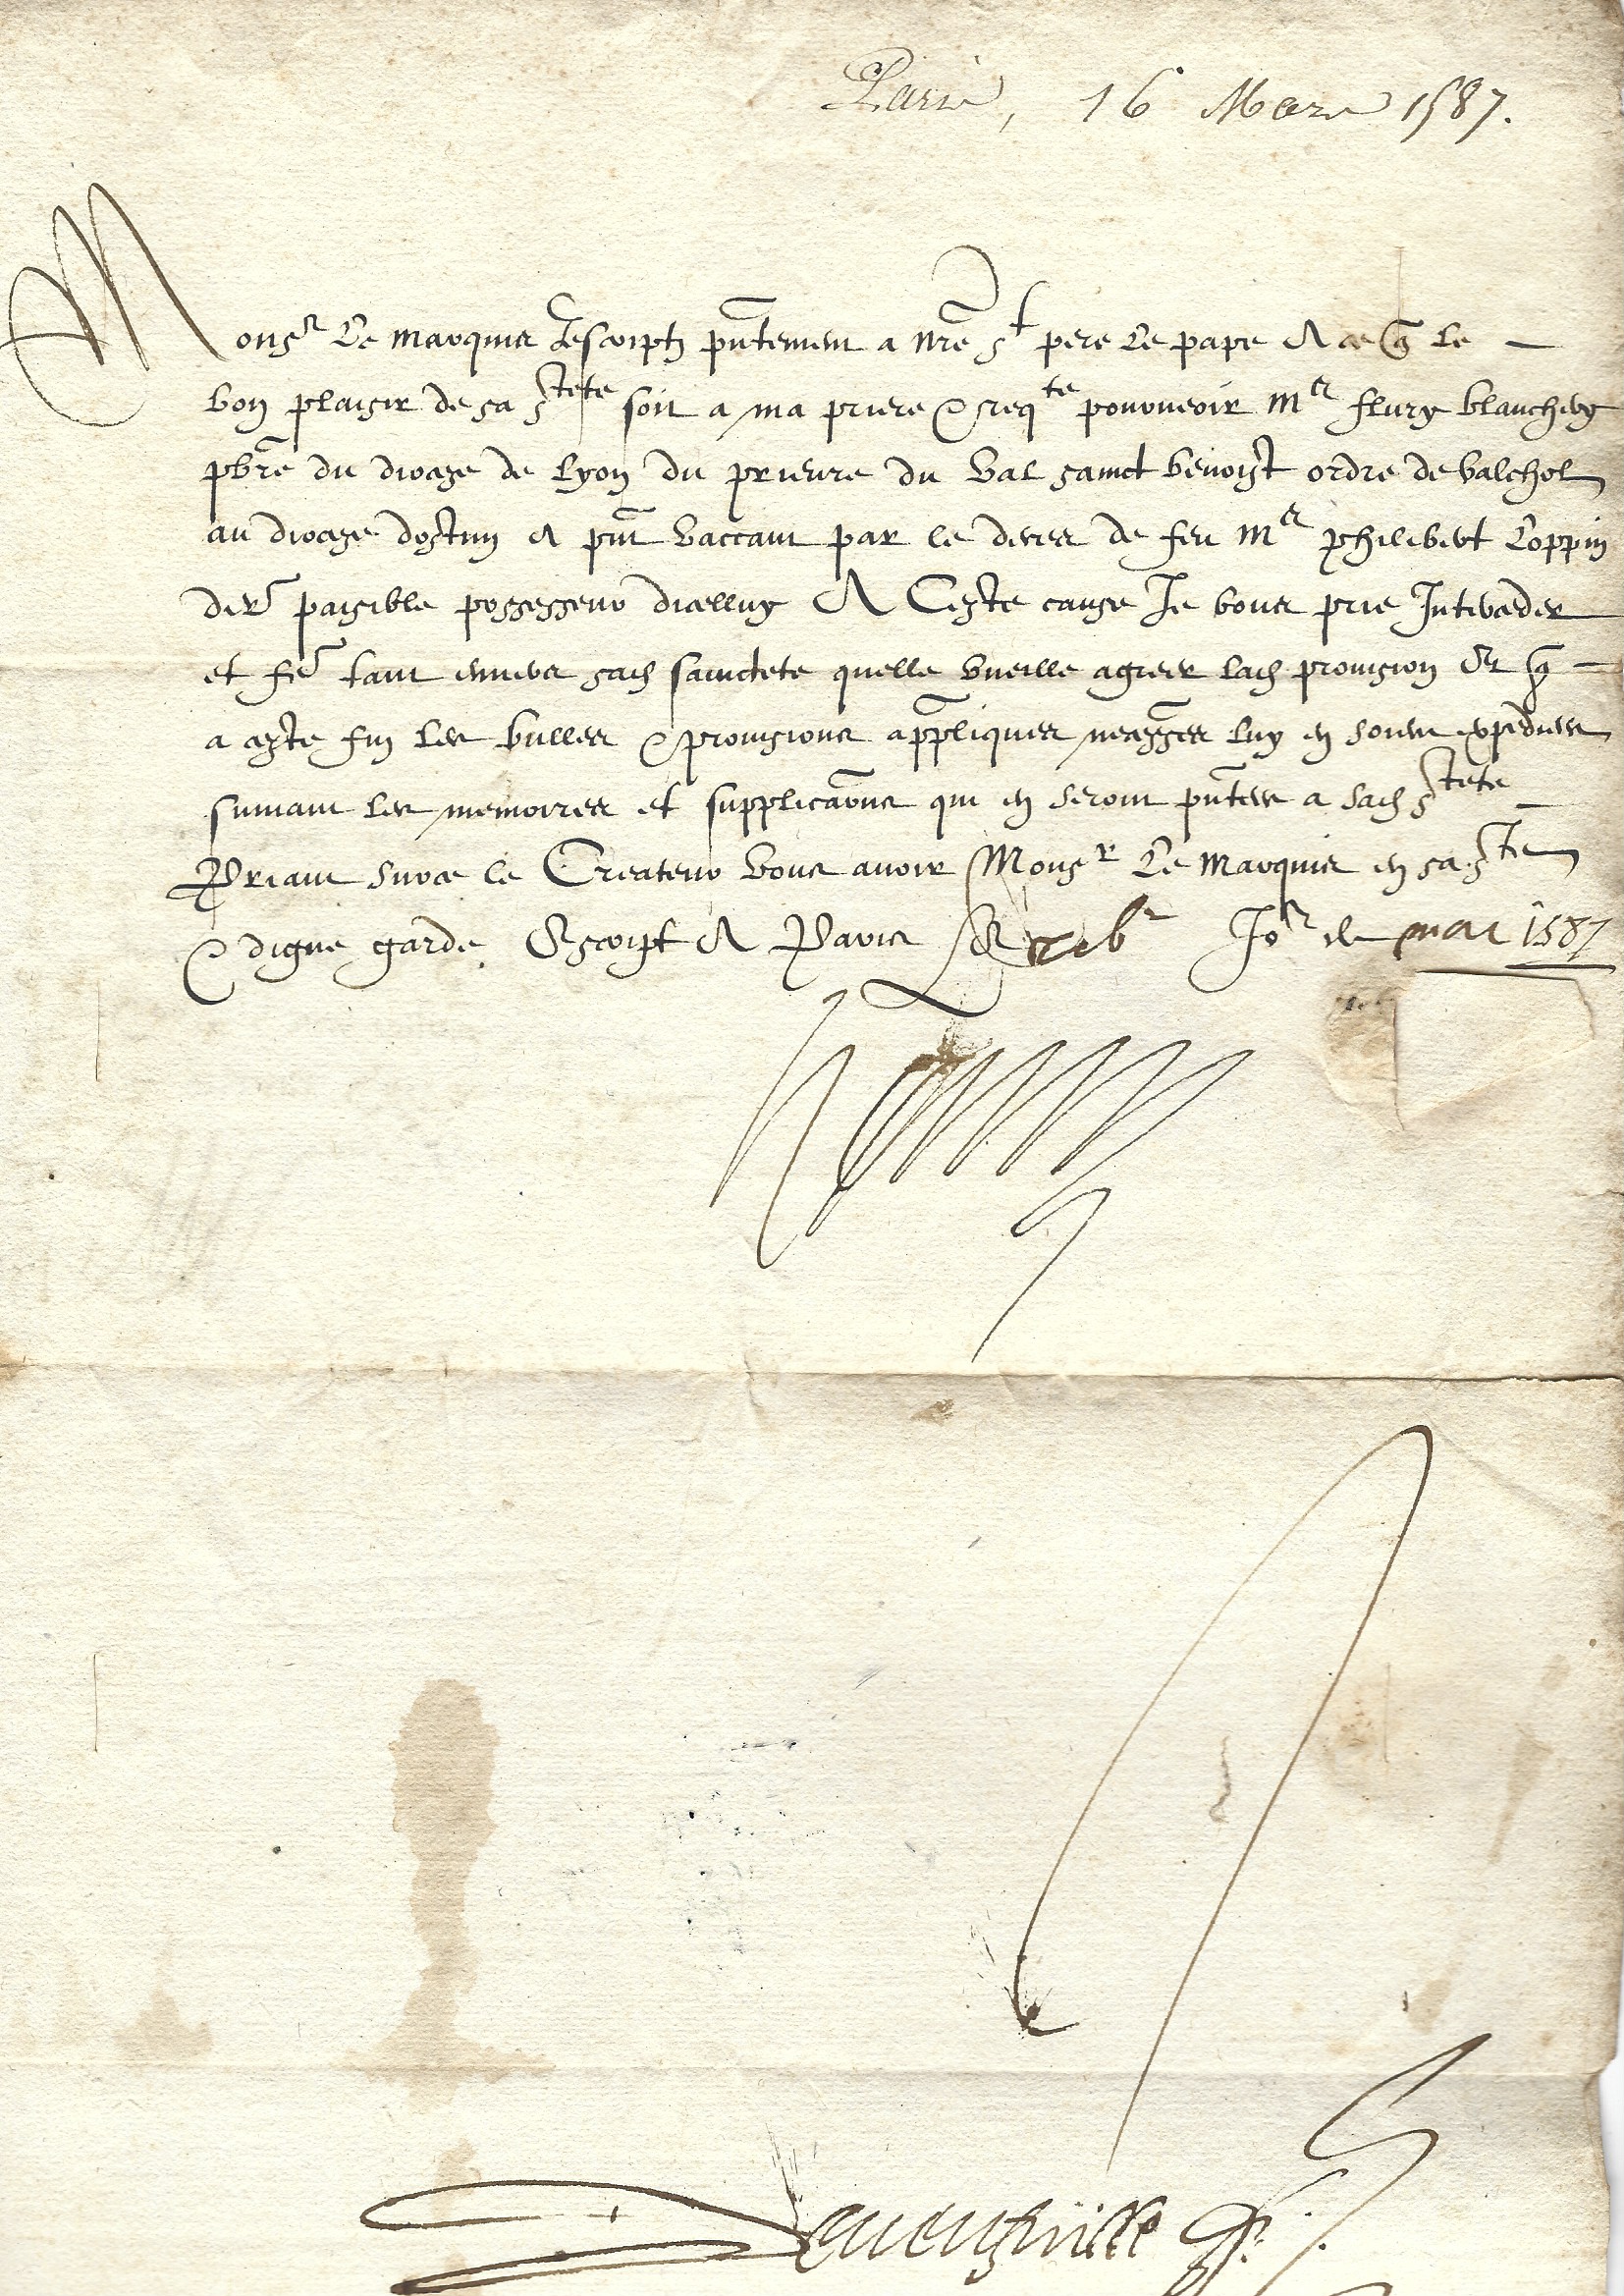 Paris, 16 Mars 1587.
Mons.r le marquis Jescriptz pñtement a nr̃e st pere le pape A ce q̃ le
bon plaisir de sa stete soit a ma priere & reqte pourveoir Mre flury blanchery
pbr̃e du diocese de Lyon du prieure du Val sainct benoist ordre de valchol
au diocese dostun A pñt vaccant par le deces de feu Mre philebert Coppin
der̃ paisible possesseur dicelluy A Ceste cause Je vous prie Interceder
et fr̃e tant envers sad sainctete quelle vueille agreer lad provision Et q̃
a ceste fin les bulles & provisions app̃liques necess̃es luy en soient expediees
suivant les memoires et supplica͠ons qui en seront pñtees a sad stete
Priant surce le Createur vous avoir Monsr le Marquis en sa ste
& digne garde. Escript A Paris le xvie Jor de mars 1587
Henry
Deneufville